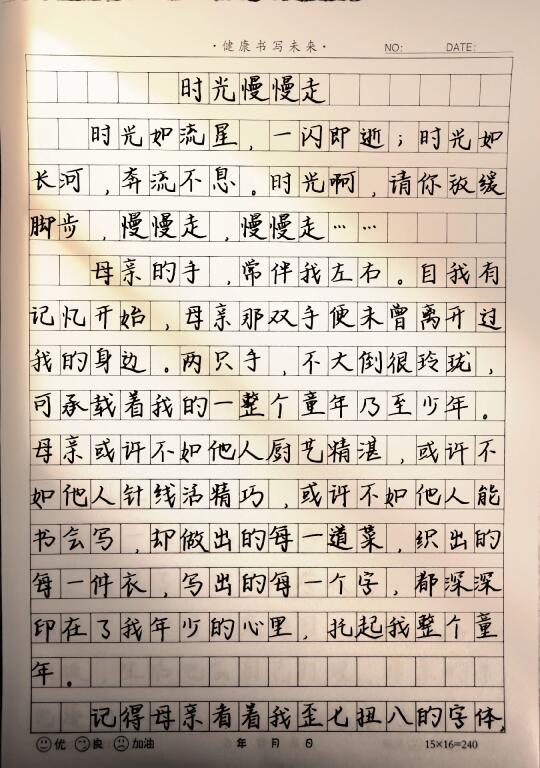 ·健康书写未来· NO: DATE:
时光慢慢走
时光如流星，一闪即逝；时光如
长河，奔流不息。时光啊，请你放缓
脚步，慢慢走，慢慢走……
母亲的手，常伴我左右。自我有
记忆开始，母亲那双手便未曾离开过
我的身边。两只手，不大倒很玲珑，
可承载着我的一整个童年乃至少年。
母亲或许不如他人厨艺精湛，或许不
如他人针线活精巧，或许不如他人能
书会写，却做出的每一道菜，织出的
每一件衣，写出的每一个字，都深深
印在了我年少的心里，托起我整个童
年。
记得母亲看着我歪七扭八的字体，
优 良 加油 年 月 日 15×16=240